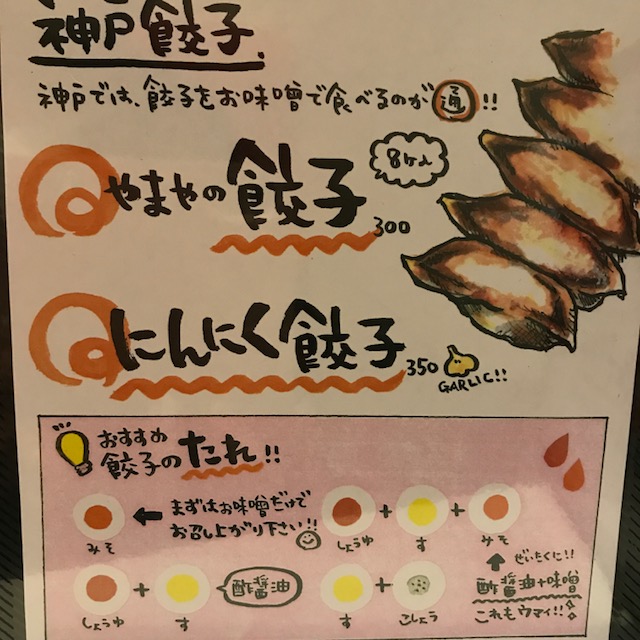 神戸餃子
神戸では、餃子をお味噌で食べるのが通!!
やまやの餃子 8ケ入 300
にんにく餃子 350 GARLIC!!
おすすめ
餃子のたれ!!
みそ ← まずはお味噌だけで
お召し上がり下さい!!
しょうゆ + す + みそ
ぜいたくに!!
酢醤油+味噌
これもウマイ!!
しょうゆ + す 酢醤油
す + こしょう